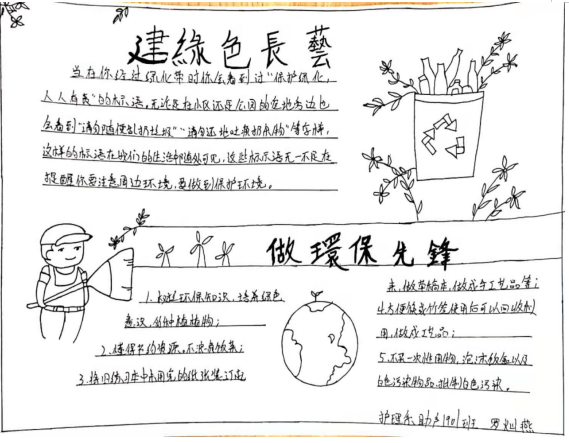 建綠色長藝
当在你经过绿化带时你会看到过“保护绿化，
人人有责”的标语，无论是在小区还是公园的草地旁边也
会看到“请勿随便乱扔垃圾”“请勿随地吐痰扔杂物”等告牌，
这样的标语在我们的生活中随处可见，这些标语无一不是在
提醒你要注意周边环境，要做到保护环境。
做環保先鋒
1、知道环保知识，培养绿色
意识，多种植植物；
2、懂得节约资源，不浪费饭菜；
3、将旧练习本中未用完的纸张装订起
来，做草稿本，做成手工艺品等；
4、使用后可以回收利
用，做成工艺品；
5、不买一次性用物，泡沫饭盒以及
白色污染物品，抵制白色污染。
护理系 助产1901班